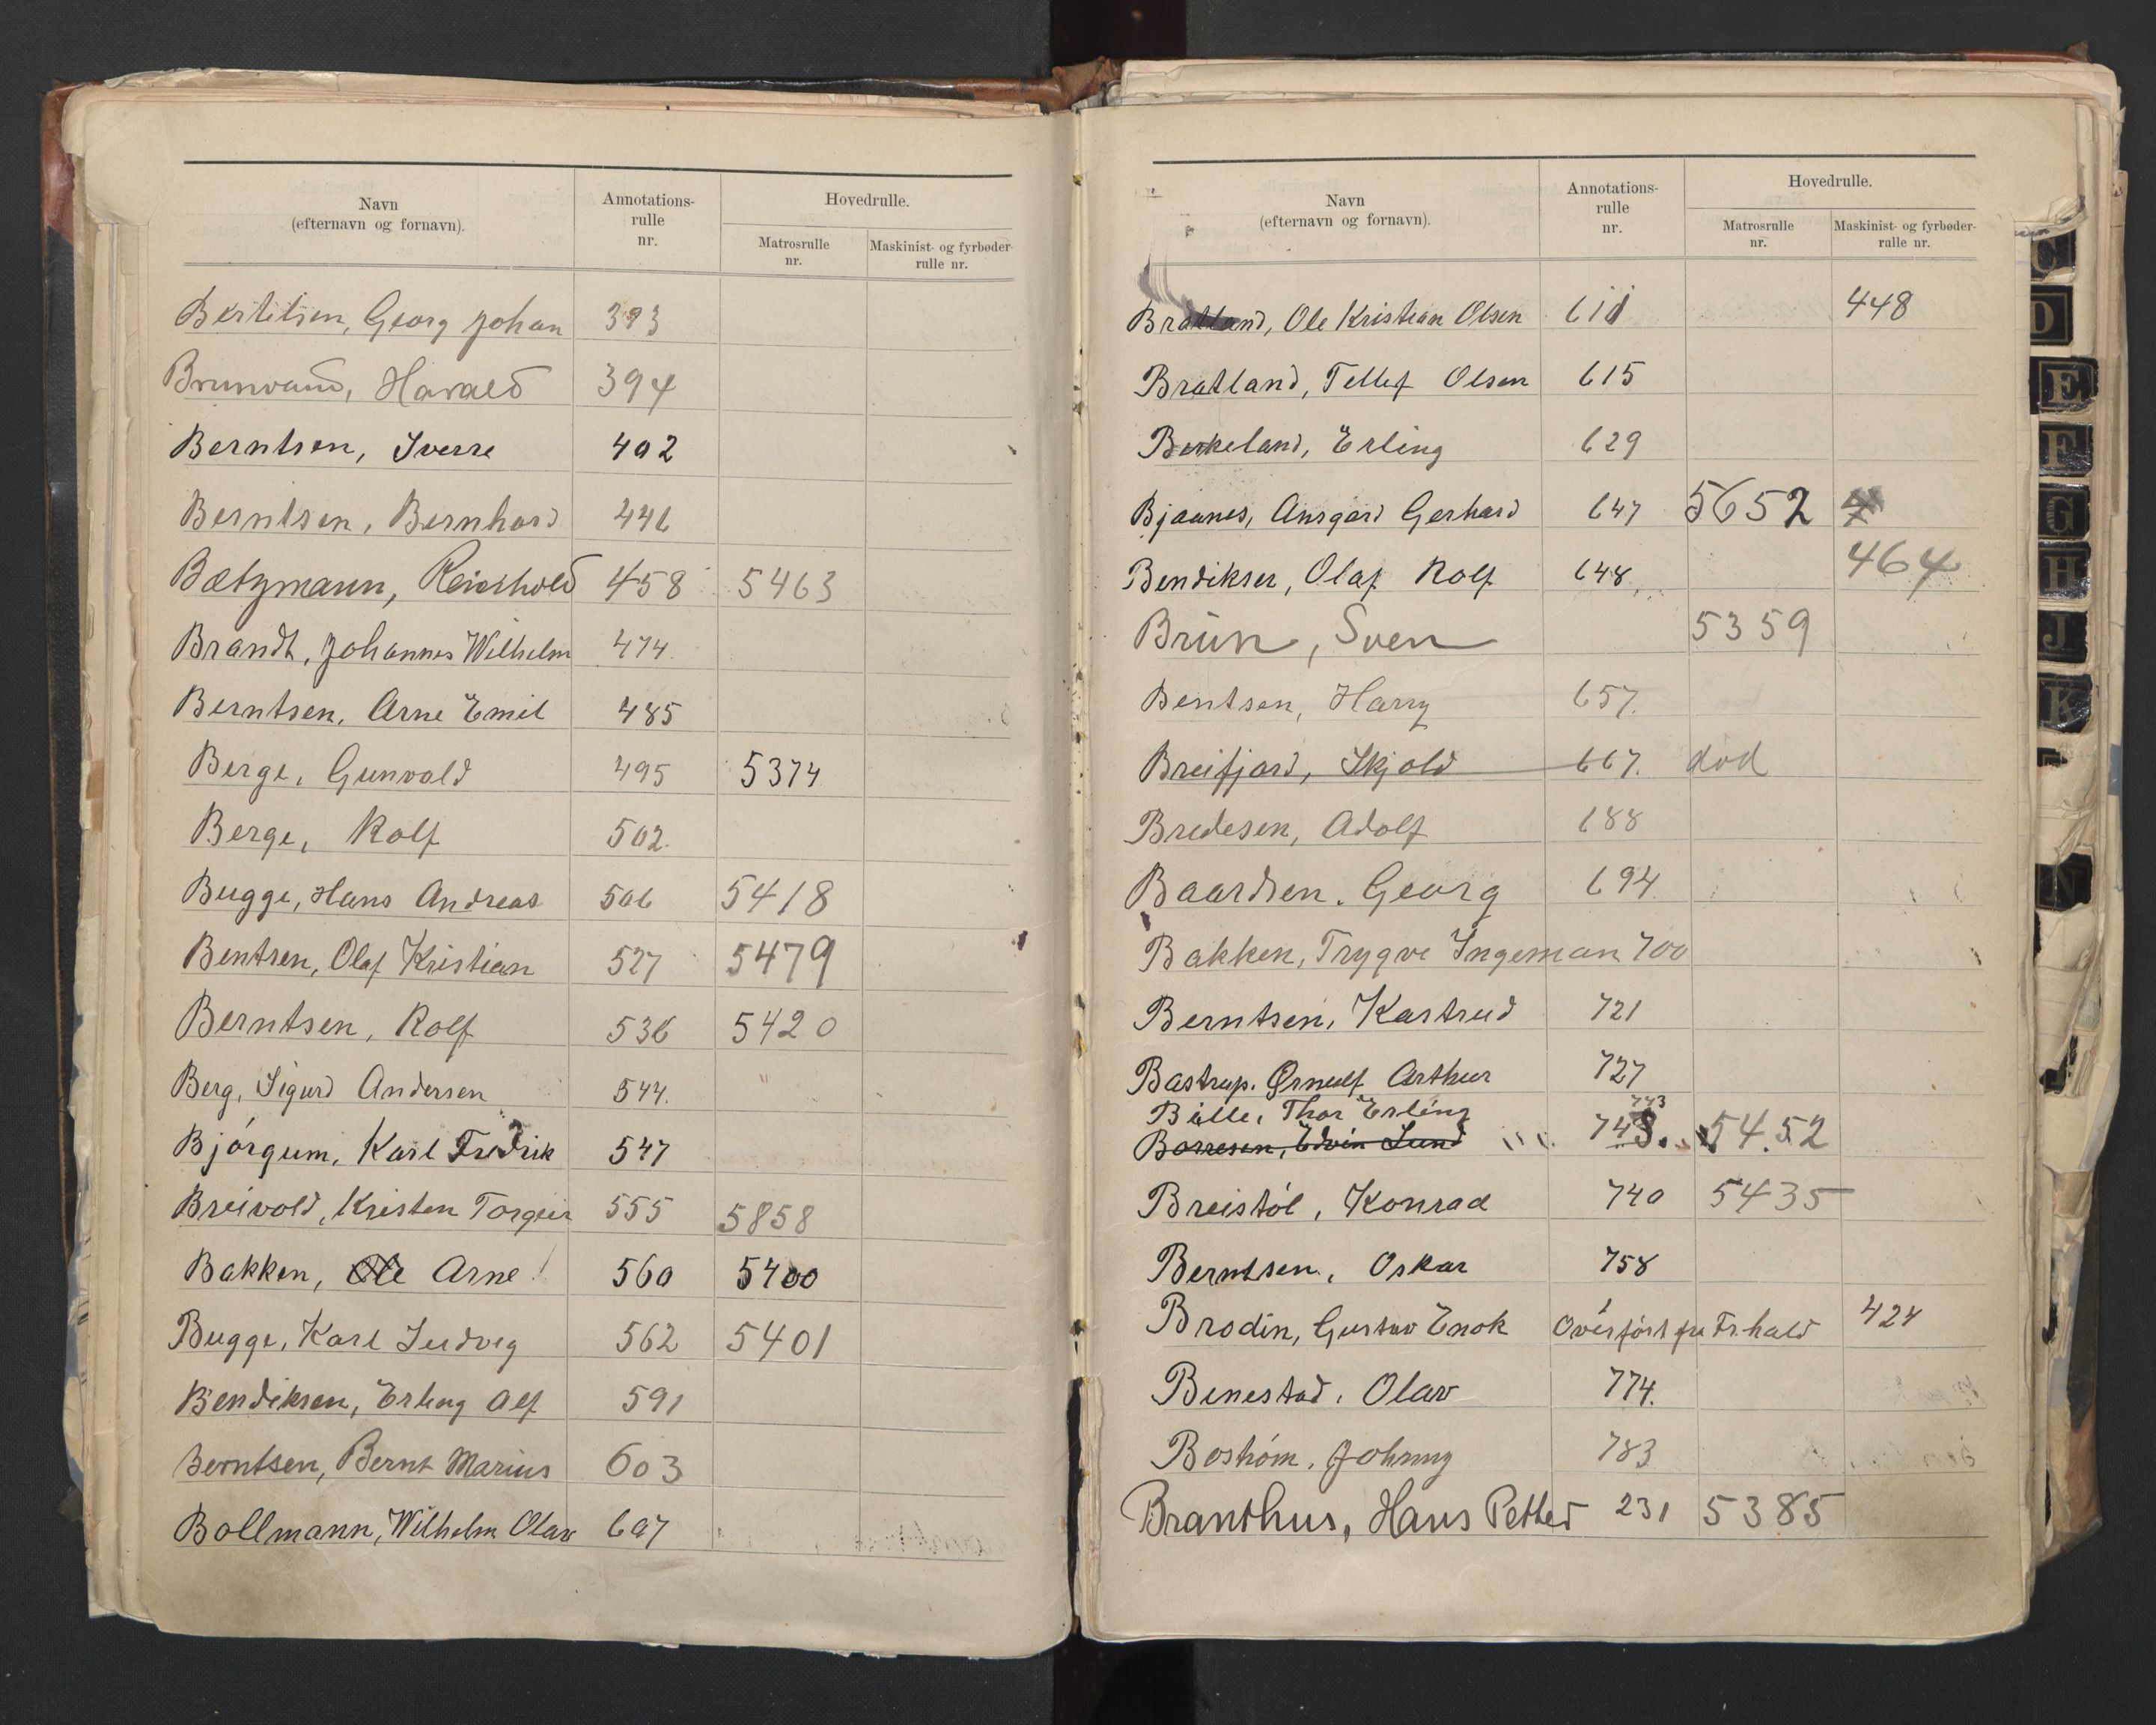 Navn
(efternavn og fornavn).
Annotations-
rulle
nr.
Hovedrulle.
Matrosrulle
nr.
Maskinist- og fyrbøder-
rulle nr.
Bertilsen, Georg Johan 393
Brunvand, Harald 394
Berntsen, Sverre 402
Berntsen, Bernhard 446
Bætzmann, Reinhold 458 5463
Brandt, Johannes Wilhelm 474.
Berntsen, Arne Emil 485
Berge, Gunvald 495 5374
Berge, Rolf 502.
Bugge, Hans Andreas 506 5418
Bentsen, Olaf Kristian 527 5479
Berntsen, Rolf 536 5420
Berg, Sigurd Andersen 544.
Bjørgum, Karl Fredrik 547
Breivold, Kristen Torgeir 555 5858
Bakken, Ole Arne 560 5400
Bugge, Karl Ludvig 562 5401
Bendiksen, Erling Alf 591
Berntsen, Bernt Marius 603
Bollmann, Wilhelm Olav 607
Navn
(efternavn og fornavn).
Annotations-
rulle
nr.
Hovedrulle.
Matrosrulle
nr.
Maskinist- og fyrbøder-
rulle nr.
Bratland, Ole Kristian Olsen 611 448
Bratland, Tellef Olsen 615
Berkeland, Erling 629
Bjaanes, Ansgard Gerhard 647 5652
Bendikser, Olaf Rolf 648 464
Brün, Sven 5359
Bentsen, Harry 657.
Breifjord, Skjold 667. død
Bredesen, Adolf 688
Baardsen, Georg 694
Bakken, Trygve Ingeman 700
Berntsen, Kastrud 721
Bastrup, Ørnulf Arthur 727
Bille, Thor Erling 743
Borresen, Edvin Lund 743. 5452
Breistøl, Konrad 740 5435
Berntsen, Oskar 758
Brodin, Gustav Enok Overført fra Fr.hald 424
Benestad, Olav 774.
Bostrøm, Johnny 783
Branthus, Hans Petter 231 5385
C
D
E
F
G
H
J
K
N